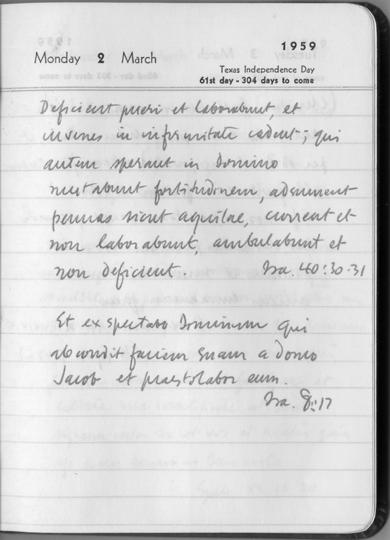 1959
Monday 2 March
Texas Independence Day
61st day - 304 days to come
Deficient pueri et laborabunt, et
iuvenes in infirmitate cadent; qui
autem sperant in Domino
mutabunt fortitudinem, adsument
pennas sicut aquilae, current et
non laborabunt, ambulabunt et
non deficient. Isa. 40:30-31
Et expectabo Dominum qui
abscondit faciem suam a domo
Jacob et praestolabor eum.
Isa. 8:17